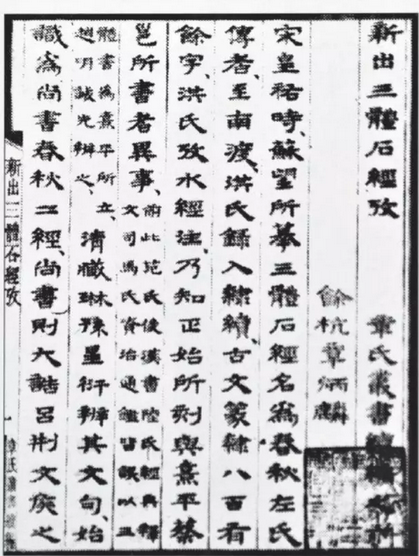 新出三體石經攷 章氏叢書續編
餘杭章炳麟
宋皇祐時、蘇望所摹三體石經名爲春秋左氏
傳者、至南渡、洪氏錄入隸續、古文篆隸八百有
餘字、洪氏攷水經注、乃知正始所刻與熹平蔡
邕所書者異事、前此范氏後漢書陸氏經典釋
文司馬氏資治通鑑皆誤以三
體書爲熹平所立、
趙明誠先辨之、
清臧琳孫星衍辨其文句、始
識爲尚書春秋二經、尚書則大誥呂刑文侯之
新出三體石經攷
一